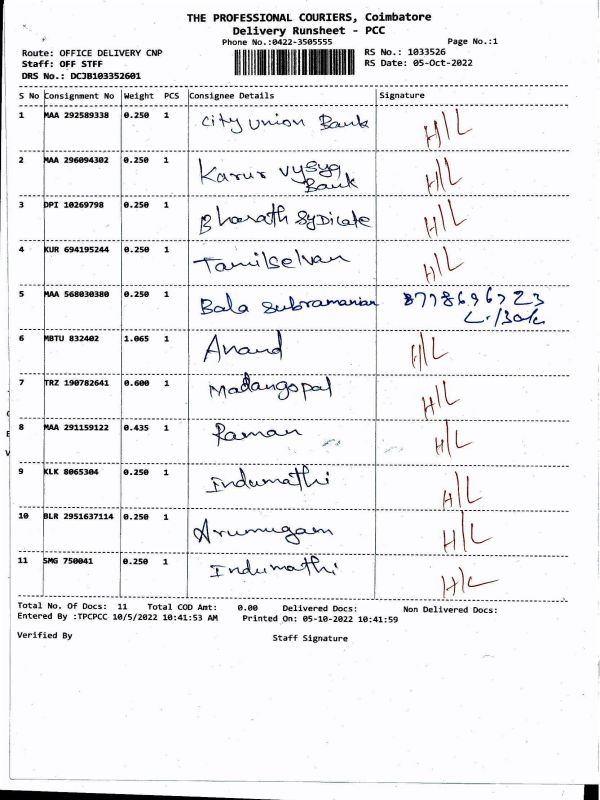 THE PROFESSIONAL COURIERS, Coimbatore
Delivery Runsheet - PCC
Phone No.:0422-3505555 Page No.:1
Route: OFFICE DELIVERY CNP RS No.: 1033526
Staff: OFF STFF RS Date: 05-Oct-2022
DRS No.: DCJB103352601
S No Consignment No Weight PCS Consignee Details Signature
1 MAA 292589338 0.250 1 City Union Bank H/L
2 MAA 296094302 0.250 1 Karur Vysya H/L
Bank
3 DPI 10269798 0.250 1 Bharath Sydicate H/L
4 KUR 694195244 0.250 1 Tamilselvan H/L
5 MAA 568030380 0.250 1 Bala Subramanian 8778696723
6 MBTU 832402 1.065 1 Anand H/L
7 TRZ 190782641 0.600 1 Madangopal H/L
8 MAA 291159122 0.435 1 Raman H/L
9 KLK 8065304 0.250 1 Indumathi H/L
10 BLR 2951637114 0.250 1 Arumugam H/L
11 SMG 750041 0.250 1 Indumathi H/L
Total No. Of Docs: 11 Total COD Amt: 0.00 Delivered Docs: Non Delivered Docs:
Entered By :TPCPCC 10/5/2022 10:41:53 AM Printed On: 05-10-2022 10:41:59
Verified By Staff Signature